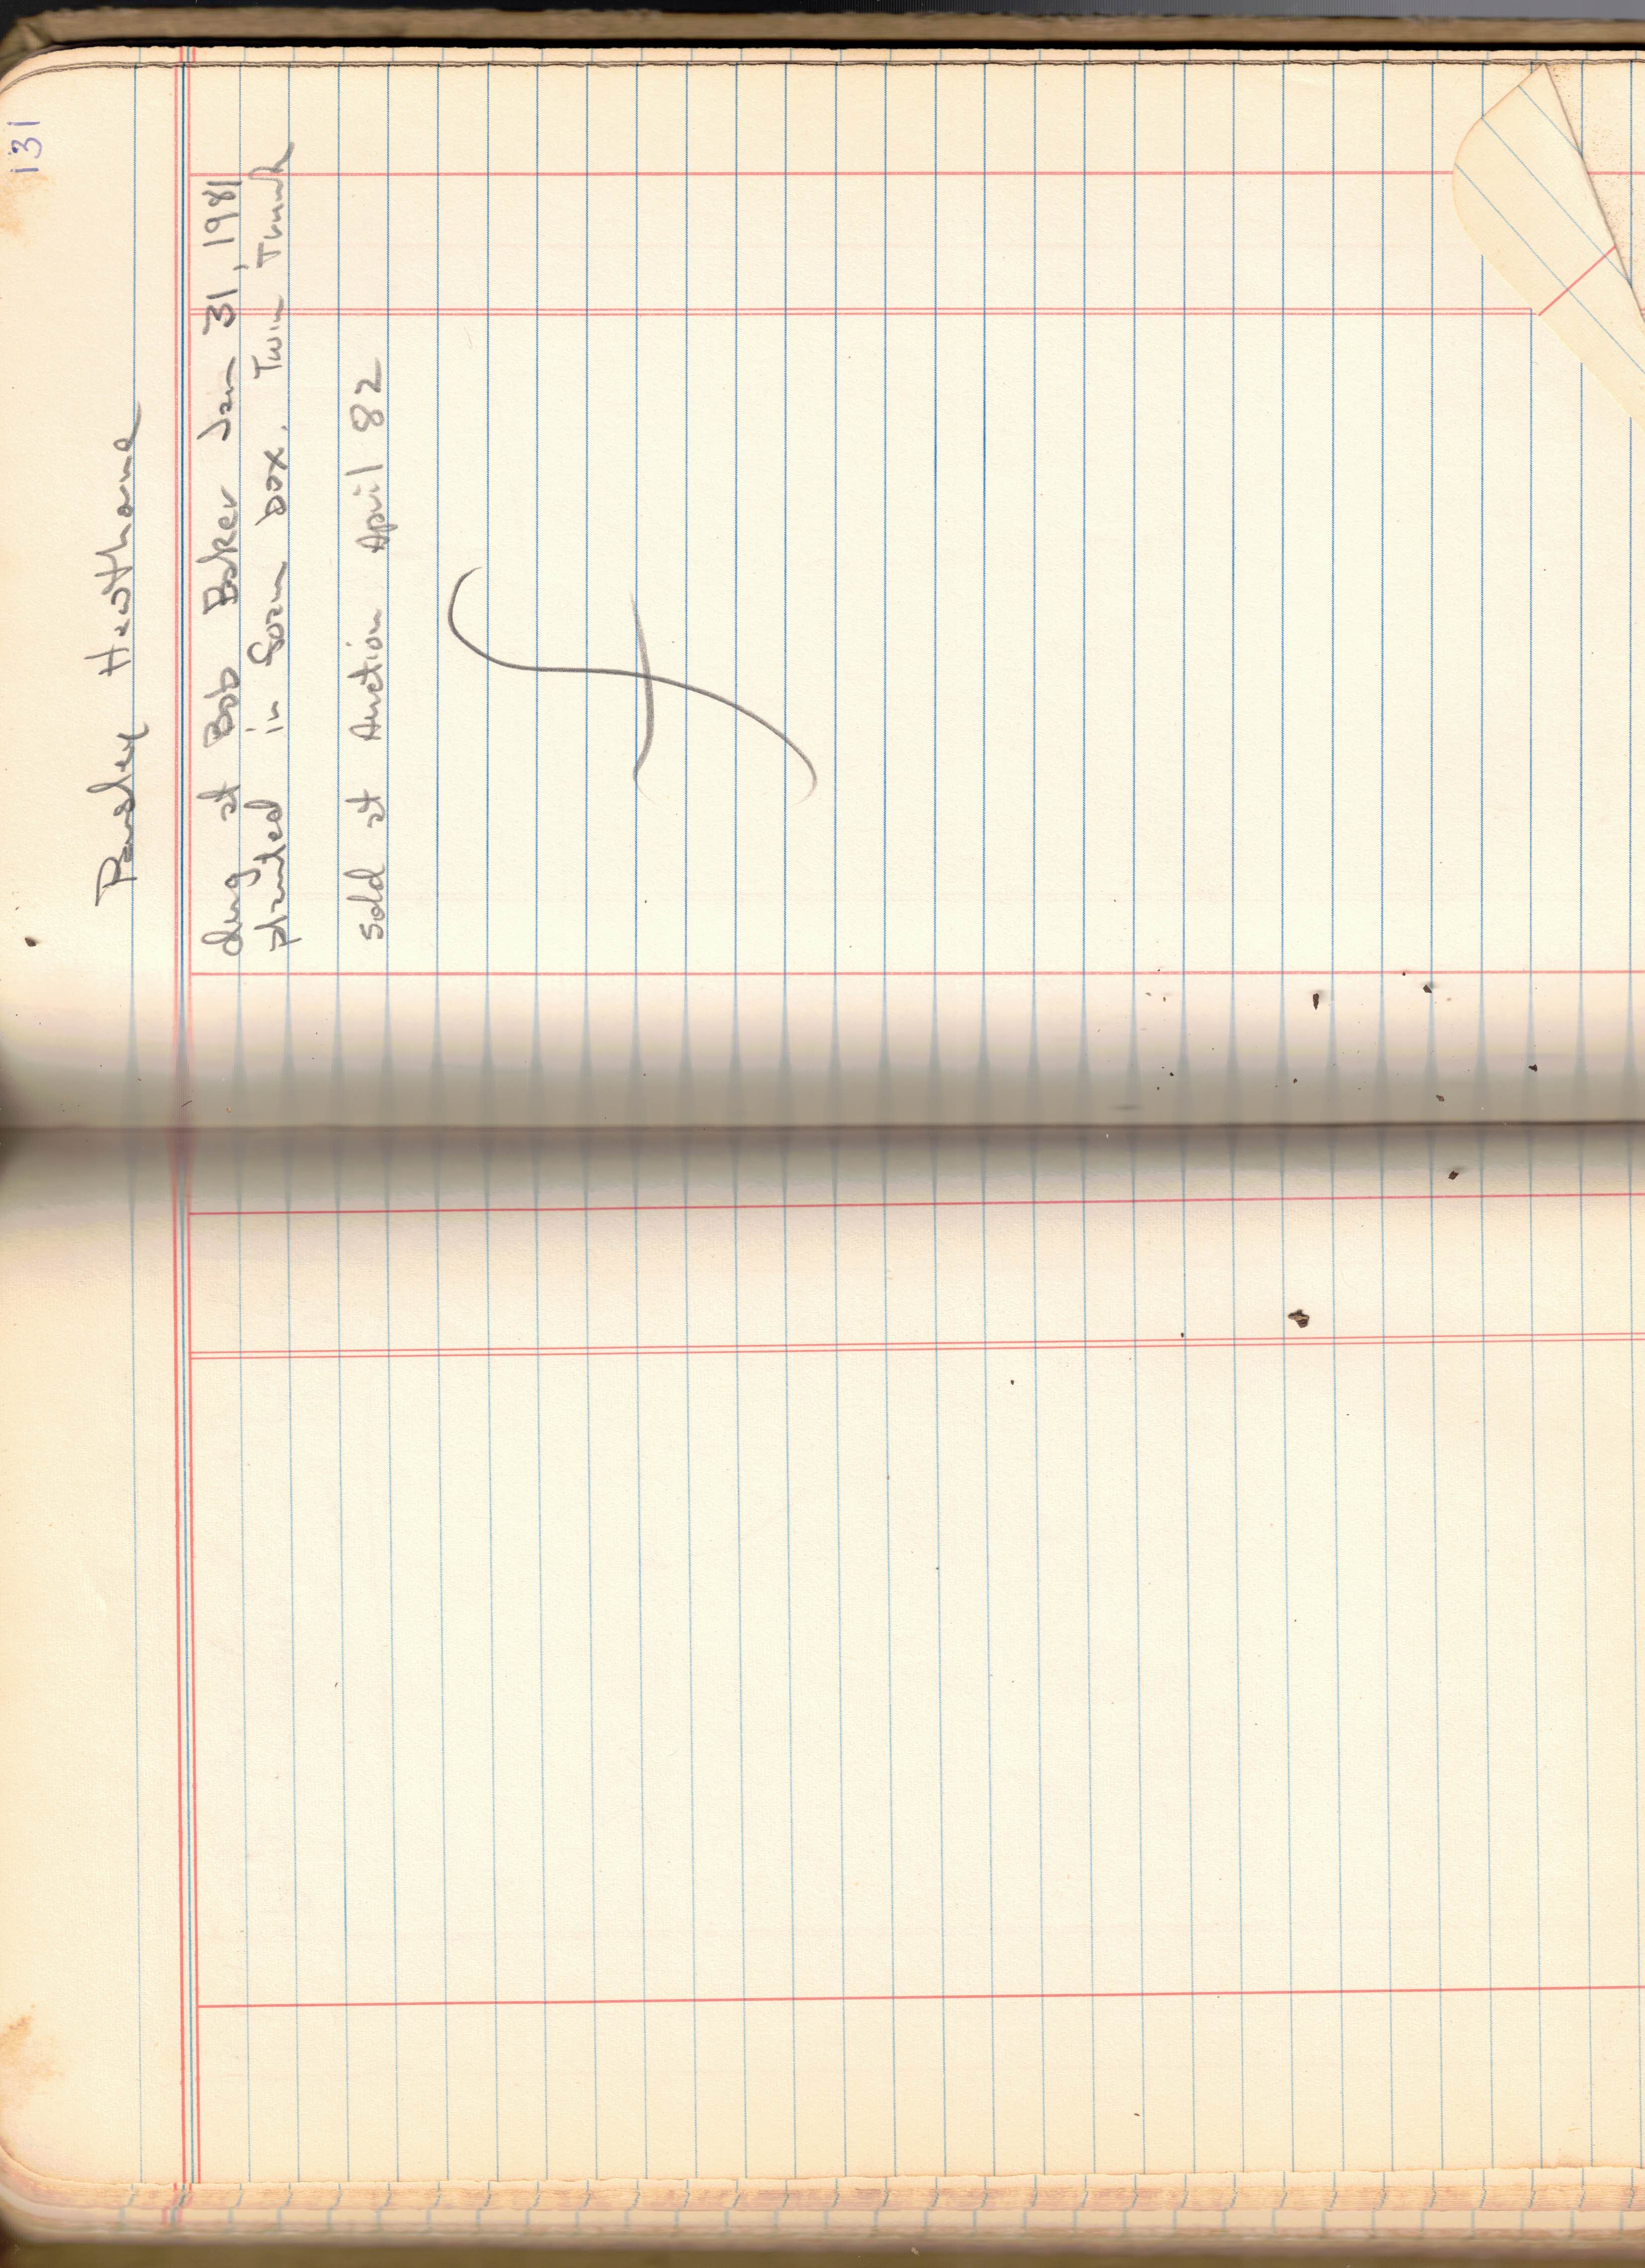 131
Parsley Hawthorne
dug at Bob Baker Jan 31, 1981
planted in foam box. Twin Trunk
sold at Auction April 82